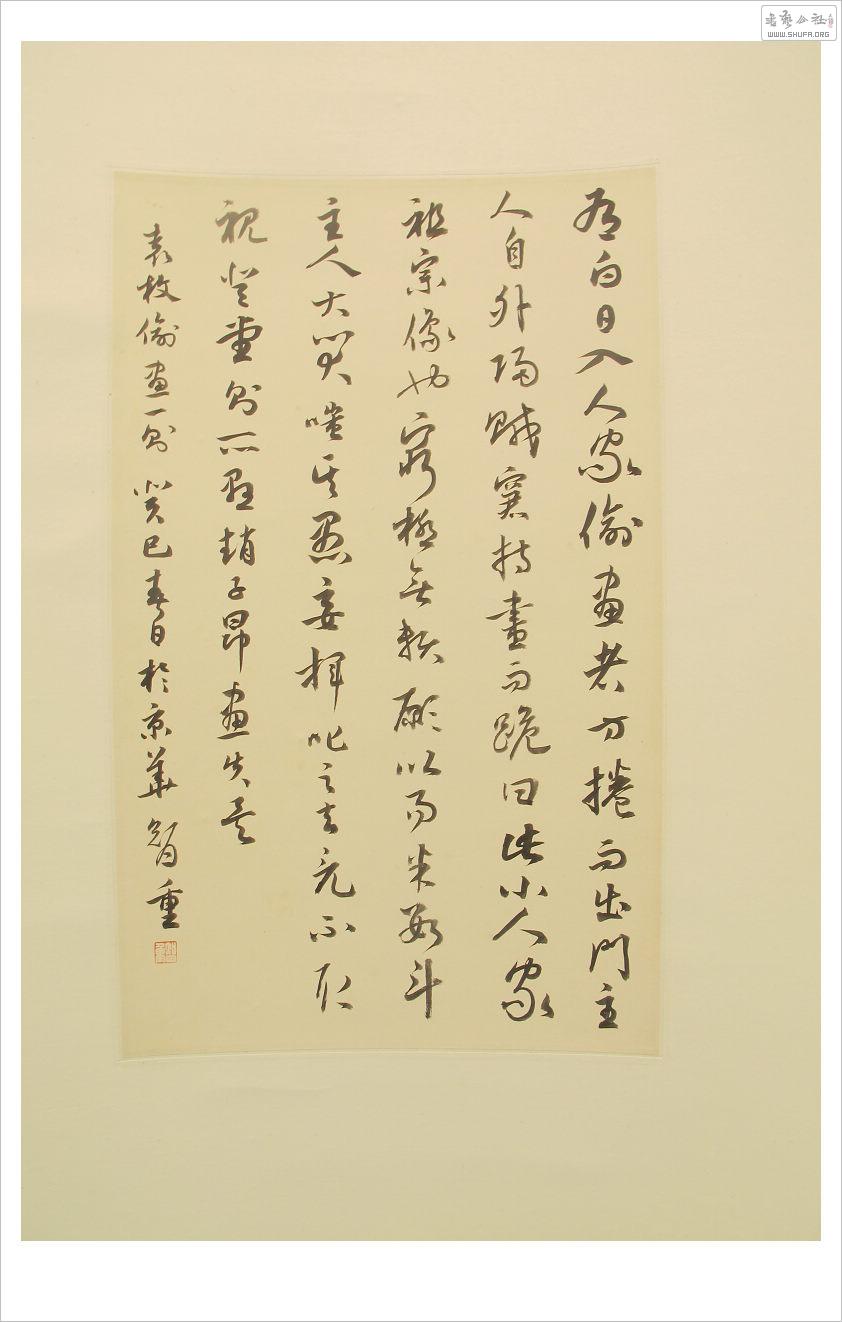 書藝公社
WWW.SHUFA.ORG
有白日入人家偷畫者方捲而出門主
人自外歸賊窘持畫而跪曰此小人家
祖宗像也窮極無願以易米數斗
主人大笑嗤其愚妄揮叱之去竟不取
視登堂則所懸趙子昂畫失矣
袁枚偷畫一則 癸巳春日於京華 智重